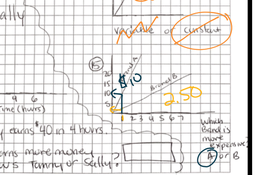 ally
variable or constant
15
Brand A
$10
Brand B
2.50
1 2 3 4 5 6 7
Time (hours)
y earns $40 in 4 hours.
Which
Brand is
more
expensive?
A or B
rns more money
Tammy or Sally?